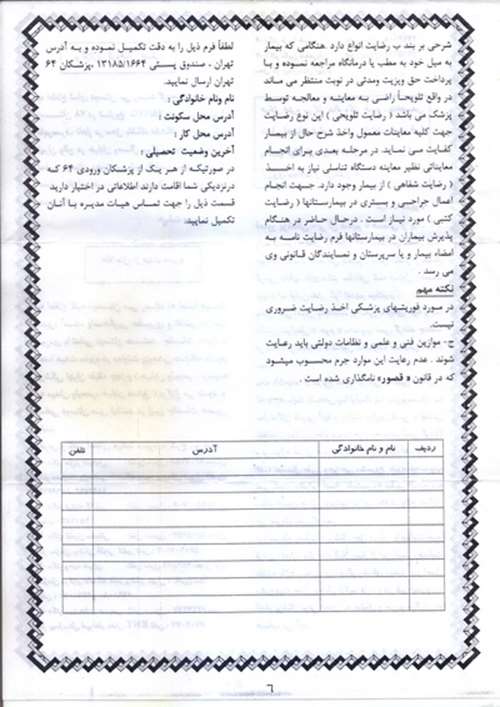 شرحی بر بند ب رضایت انواع دارد. هنگامی که بیمار
به میل خود به مطب یا درمانگاه مراجعه نموده و با
پرداخت حق ویزیت ومدتی در نوبت منتظر می ماند
در واقع تلویحاً راضی به معاینه و معالجه توسط
پزشک می باشد ( رضایت تلویحی ) این نوع رضایت
جهت کلیه معاینات معمول واخذ شرح حال از بیمار
کفایت می نماید. در مرحله بعدی برای انجام
معایناتی نظیر معاینه دستگاه تناسلی نیاز به اخذ
( رضایت شفاهی ) از بیمار وجود دارد. جهت انجام
اعمال جراحی و بستری در بیمارستانها ( رضایت
کتبی ) مورد نیاز است . درحال حاضر در هنگام
پذیرش بیماران در بیمارستانها فرم رضایت نامه به
امضاء بیمار و یا سرپرستان و نمایندگان قانونی وی
می رسد .
نکته مهم
در مورد فوریتهای پزشکی اخذ رضایت ضروری
نیست.
ج- موازین فنی و علمی و نظامات دولتی باید رعایت
شوند . عدم رعایت این موارد جرم محسوب میشود
که در قانون « قصور» نامگذاری شده است .
لطفاً فرم ذیل را به دقت تکمیل نموده و به آدرس
تهران ، صندوق پستی ۱۳۱۸۵/۱۶۶۴ ،پزشکان ۶۴
تهران ارسال نمایید.
نام ونام خانوادگی :
آدرس محل سکونت :
آدرس محل کار :
آخرین وضعیت تحصیلی :
در صورتیکه از هر یک از پزشکان ورودی ۶۴ که
درنزدیکی شما اقامت دارند اطلاعاتی در اختیار دارید
قسمت ذیل را جهت تماس هیات مدیره با آنان
تکمیل نمایید.
ردیف نام و نام خانوادگی آدرس تلفن
۶